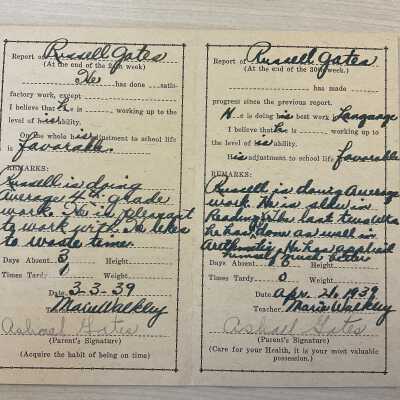 Report of Russell Gates
(At the end of the 20th week)
He
has done satis-
factory work, except
I believe that he is working up to the
level of his ability.
On the whole his adjustment to school life
is favorable.
REMARKS:
Russell is doing
average 4th grade
work. He is pleasant
to work with. He likes
to waste time.
Days Absent 3 Height
Times Tardy 0 Weight
Date 3-3-39
Marie Walkley
Ashael Gates
(Parent's Signature)
(Acquire the habit of being on time)
Report of Russell Gates
(At the end of the 30th week.)
has made
progress since the previous report.
He is doing his best work Language
I believe that he is working up to the
level of his ability.
His adjustment to school life favorable
REMARKS:
Russell is doing average
work. He is slow in
Reading. The last ten wks
he hasn't done as well in
Arithmetic. He has applied
himself much better
Days Absent 0 Height
Times Tardy 0 Weight
Date Apr. 21, 1939
Teacher Marie Walkley
Ashael Gates
(Parent's Signature)
(Care for your Health, it is your most valuable
possession.)